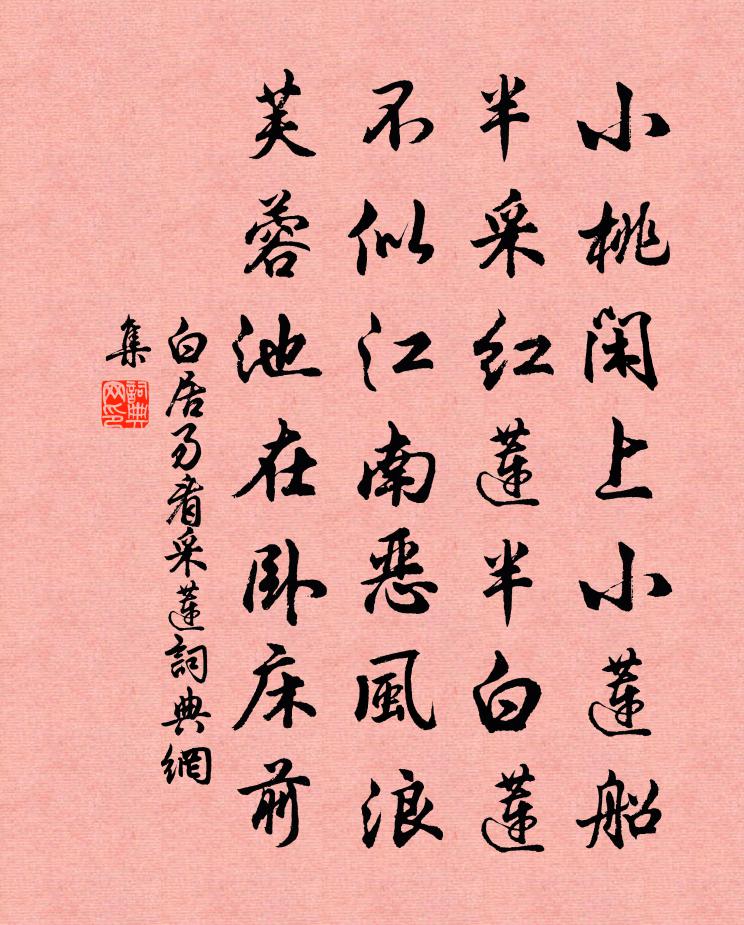 小桃闲上小莲船
半采红莲半白莲
不似江南恶風浪
芙蓉池在卧床前
白居易看采莲詞典網
集
詞典网印